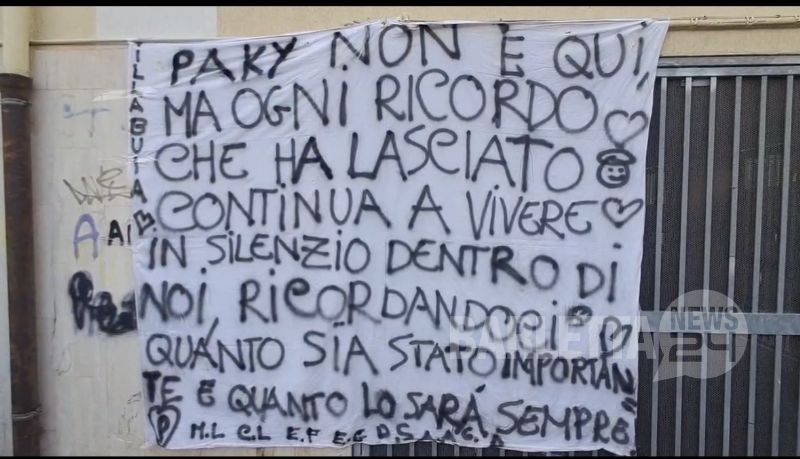 PAKY NON È QUI,
MA OGNI RICORDO
CHE HA LASCIATO
CONTINUA A VIVERE
IN SILENZIO DENTRO DI
NOI, RICORDANDOCI
QUANTO SIA STATO IMPORTAN
TE E QUANTO LO SARÁ SEMPRE.
P M.L C.L E.F E.G D.S A.A G.A
BARLETTA NEWS 24